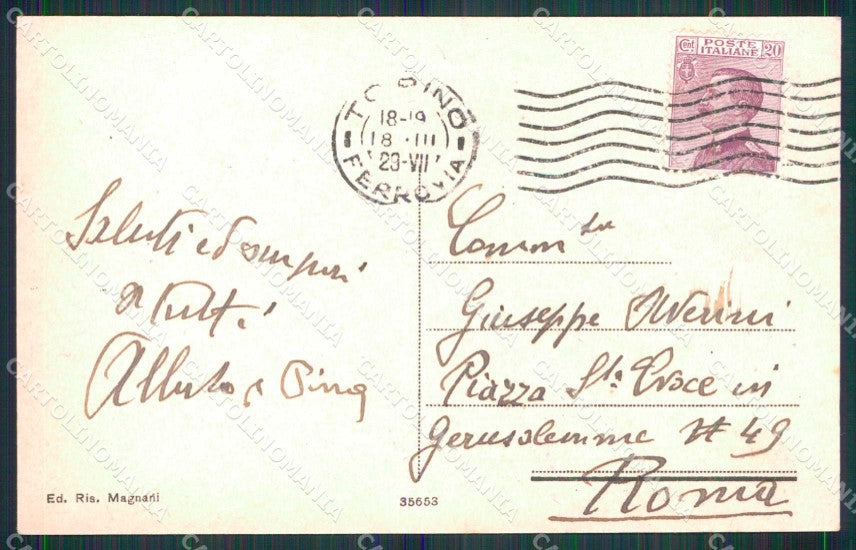 Cent POSTE 20
ITALIANE
TORINO
18-19
18 · III
23-VII
FERROVIA
Saluti ed auguri
a tutti
Alberto e Pina
Comm
Giuseppe
Piazza Sta Croce in
Gerusalemme # 49
Roma
Ed. Ris. Magnani
35653
CARTOLINOMANIA